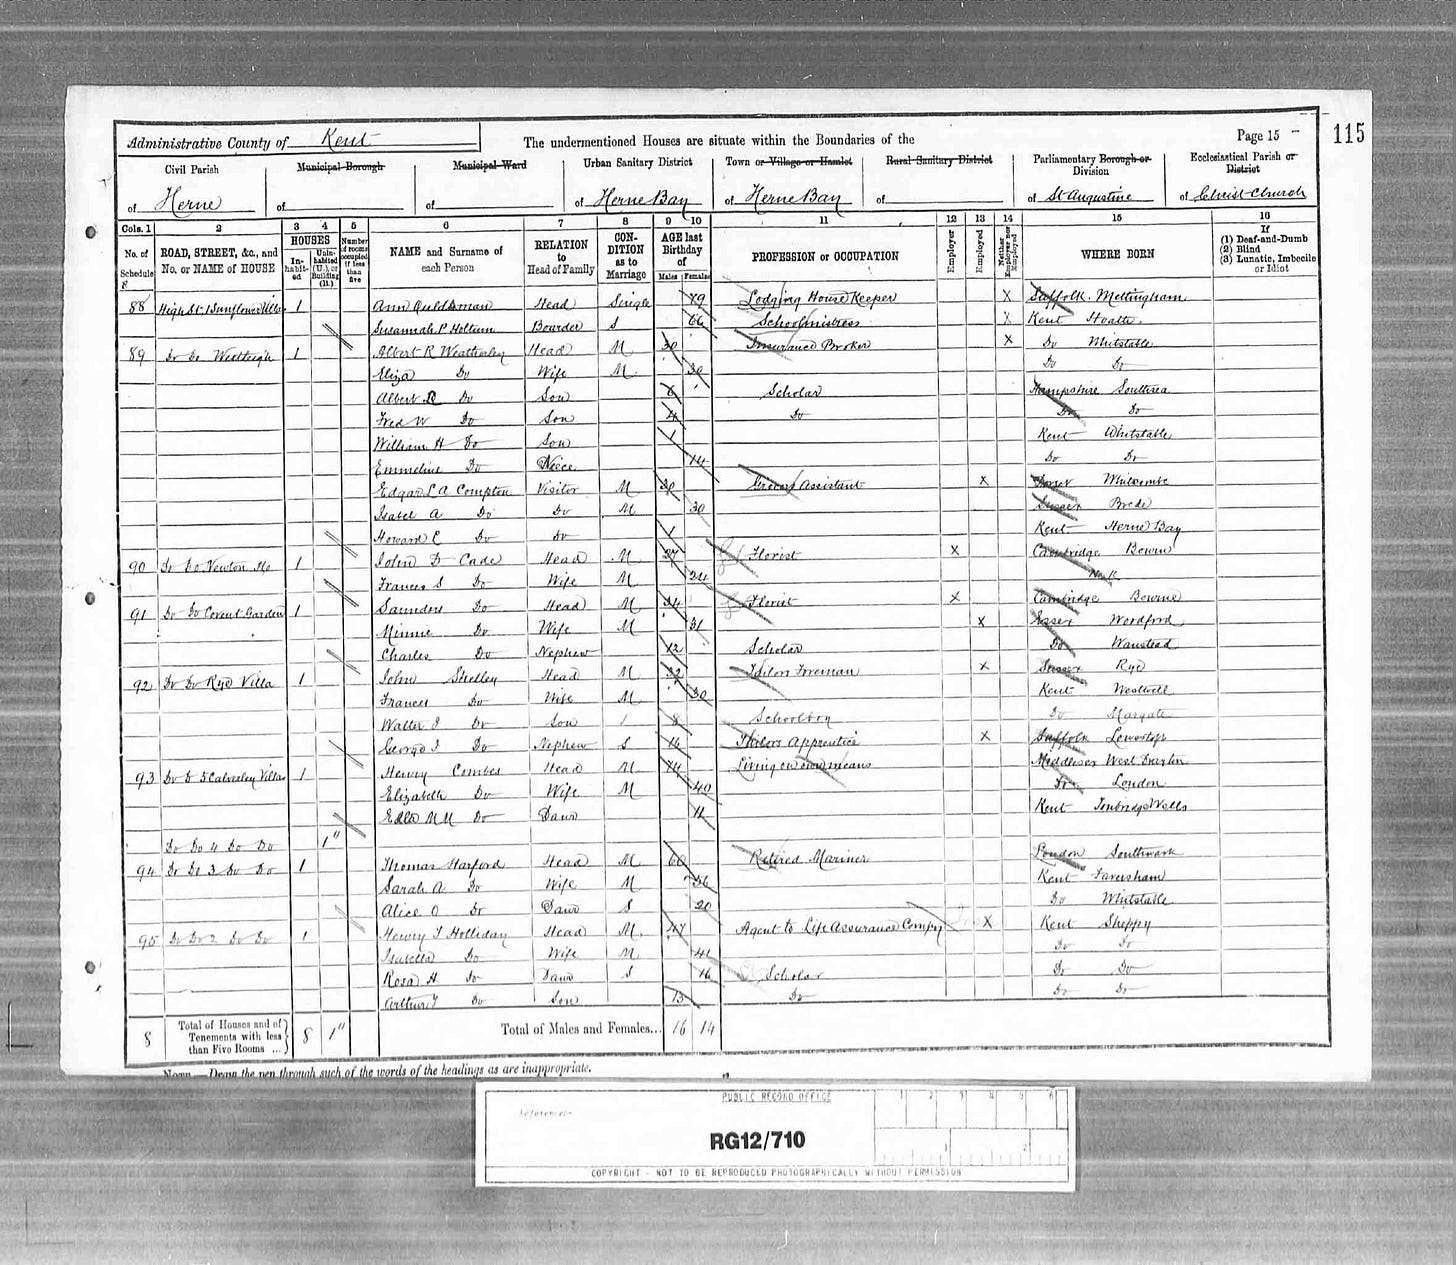 Administrative County of Kent
The undermentioned Houses are situate within the Boundaries of the
Page 15
115
Civil Parish
Municipal Borough
Municipal Ward
Urban Sanitary District
Town or Village or Hamlet
Rural Sanitary District
Parliamentary Borough or Division
Ecclesiastical Parish or District
of Herne
of
of
of Herne Bay
of Herne Bay
of
of St Augustine
of Christ Church
Cols. 1 2 3 4 5 6 7 8 9 10 11 12 13 14 15 16
No. of Schedule
ROAD, STREET, &c., and No. or NAME of HOUSE
HOUSES
Inhabited
Uninhabited (U.), or Building (B.)
Number of rooms occupied if less than five
NAME and Surname of each Person
RELATION to Head of Family
CONDITION as to Marriage
AGE last Birthday of
Males
Females
PROFESSION or OCCUPATION
Employer
Employed
Neither Employer nor Employed
WHERE BORN
If
(1) Deaf-and-Dumb
(2) Blind
(3) Lunatic, Imbecile or Idiot
88 High St. 1 Sunflower Villas 1 Ann Head Single 79 Lodging House Keeper X Suffolk. Mettingham
Susannah P Holtum Boarder S 66 Schoolmistress X Kent Hoath
89 Do Do Westleigh 1 Albert R Weatherley Head M 30 Insurance Broker X Do Whitstable
Eliza Do Wife M 30 Do Do
Albert R Do Son 6 Scholar Hampshire Southsea
Fred W Do Son 4 Do Do Do
William H Do Son 1 Kent Whitstable
Emmeline Do Niece 14 Do Do
Edgar L A Compton Visitor M 30 Grocers Assistant X Dorset Whitcombe
Isabel A Do Do M 30 Sussex Brede
Howard C Do Do 1 Kent Herne Bay
90 Do Do Newton Ho 1 John D Cade Head M 27 Florist X Cambridge Bourn
Frances S Do Wife M 24 N.K.
91 Do Do Covent Garden 1 Saunders Do Head M 34 Florist X Cambridge Bourne
Minnie Do Wife M 31 X Essex Woodford
Charles Do Nephew 12 Scholar Do Wanstead
92 Do Do Rye Villa 1 John Shelley Head M 32 Tailors Foreman X Sussex Rye
Frances Do Wife M 30 Kent Westwell
Walter J Do Son 8 Schoolboy Do Margate
George J Do Nephew S 16 Tailors Apprentice X Suffolk Lowestoft
93 Do Do 5 Calverley Villas 1 Henry Combes Head M 74 Living on own means Middlesex West Drayton
Elizabeth Do Wife M 40 Do London
Edla M M Do Daur 12 Kent Tonbridge Wells
Do Do 4 Do Do 1
94 Do Do 3 Do Do 1 Thomas Harford Head M 60 Retired Mariner London Southwark
Sarah A Do Wife M 56 Kent Faversham
Alice O Do Daur S 20 Do Whitstable
95 Do Do 2 Do Do 1 Henry T Holliday Head M 47 Agent to Life Assurance Compy X Kent Sheppey
Isabella Do Wife M 41 Do Do
Rosa H Do Daur S 16 Scholar Do Do
Arthur T Do Son 13 Do Do Do
8 Total of Houses and of Tenements with less than Five Rooms ... 8 1 Total of Males and Females... 16 14
NOTE.—Draw the pen through such of the words of the headings as are inappropriate.
PUBLIC RECORD OFFICE
1 2 3 4 5 6
Reference:-
RG12/710
1 2
COPYRIGHT - NOT TO BE REPRODUCED PHOTOGRAPHICALLY WITHOUT PERMISSION